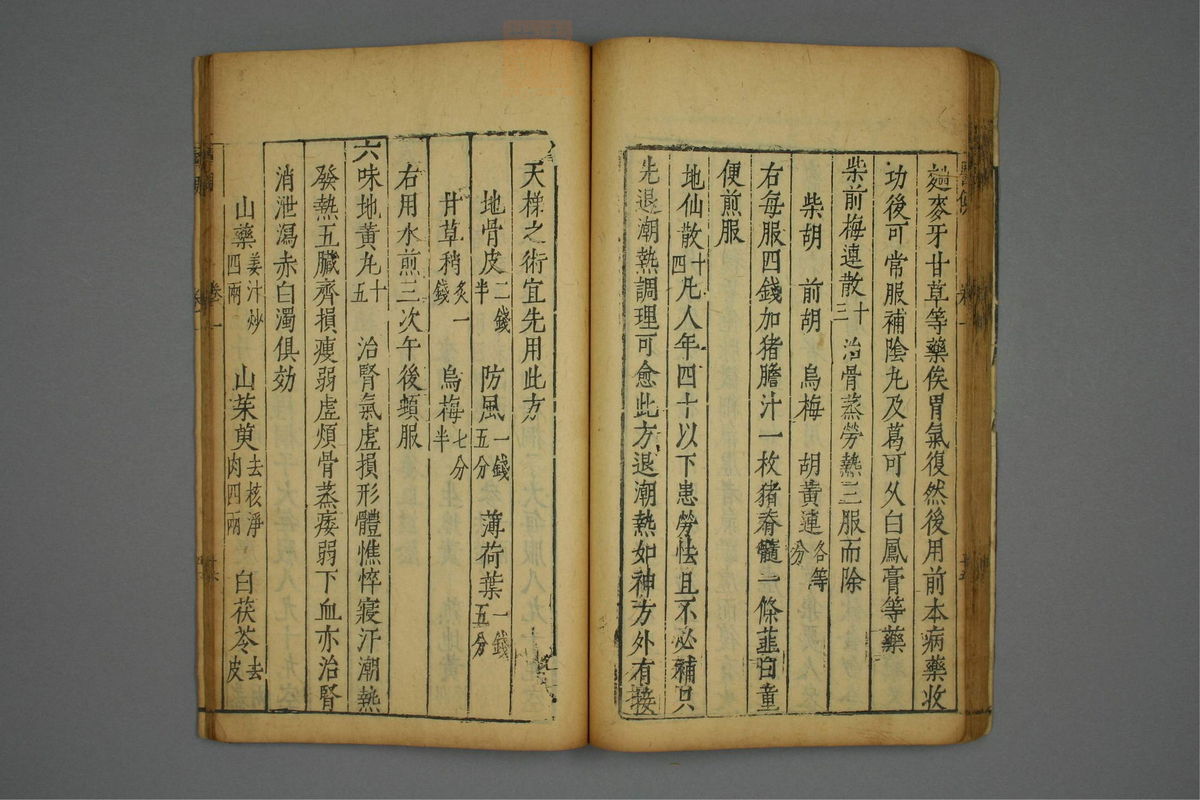 麯麥牙甘草等藥俟胃氣復然後用前本病藥收
功後可常服補陰丸及葛可久白鳳膏等藥
柴前梅連散十三 治骨蒸勞熱三服而除
柴胡 前胡 烏梅 胡黃連各等分
右每服四錢加猪膽汁一枚猪脊髓一條韮白童
便煎服
地仙散十四凡人年四十以下患勞怯且不必補只
先退潮熱調理可愈此方退潮熱如神方外有接
天梯之術宜先用此方
地骨皮二錢半 防風一錢五分 薄荷葉一錢五分
甘草稍炙一錢 烏梅七分半
右用水煎三次午後頓服
六味地黃丸十五 治腎氣虛損形體憔悴寢汗潮熱
發熱五臟齊損瘦弱虛煩骨蒸痿弱下血亦治腎
消泄瀉赤白濁俱効
山藥姜汁炒四兩 山茱萸去核淨肉四兩 白茯苓去皮
卷一